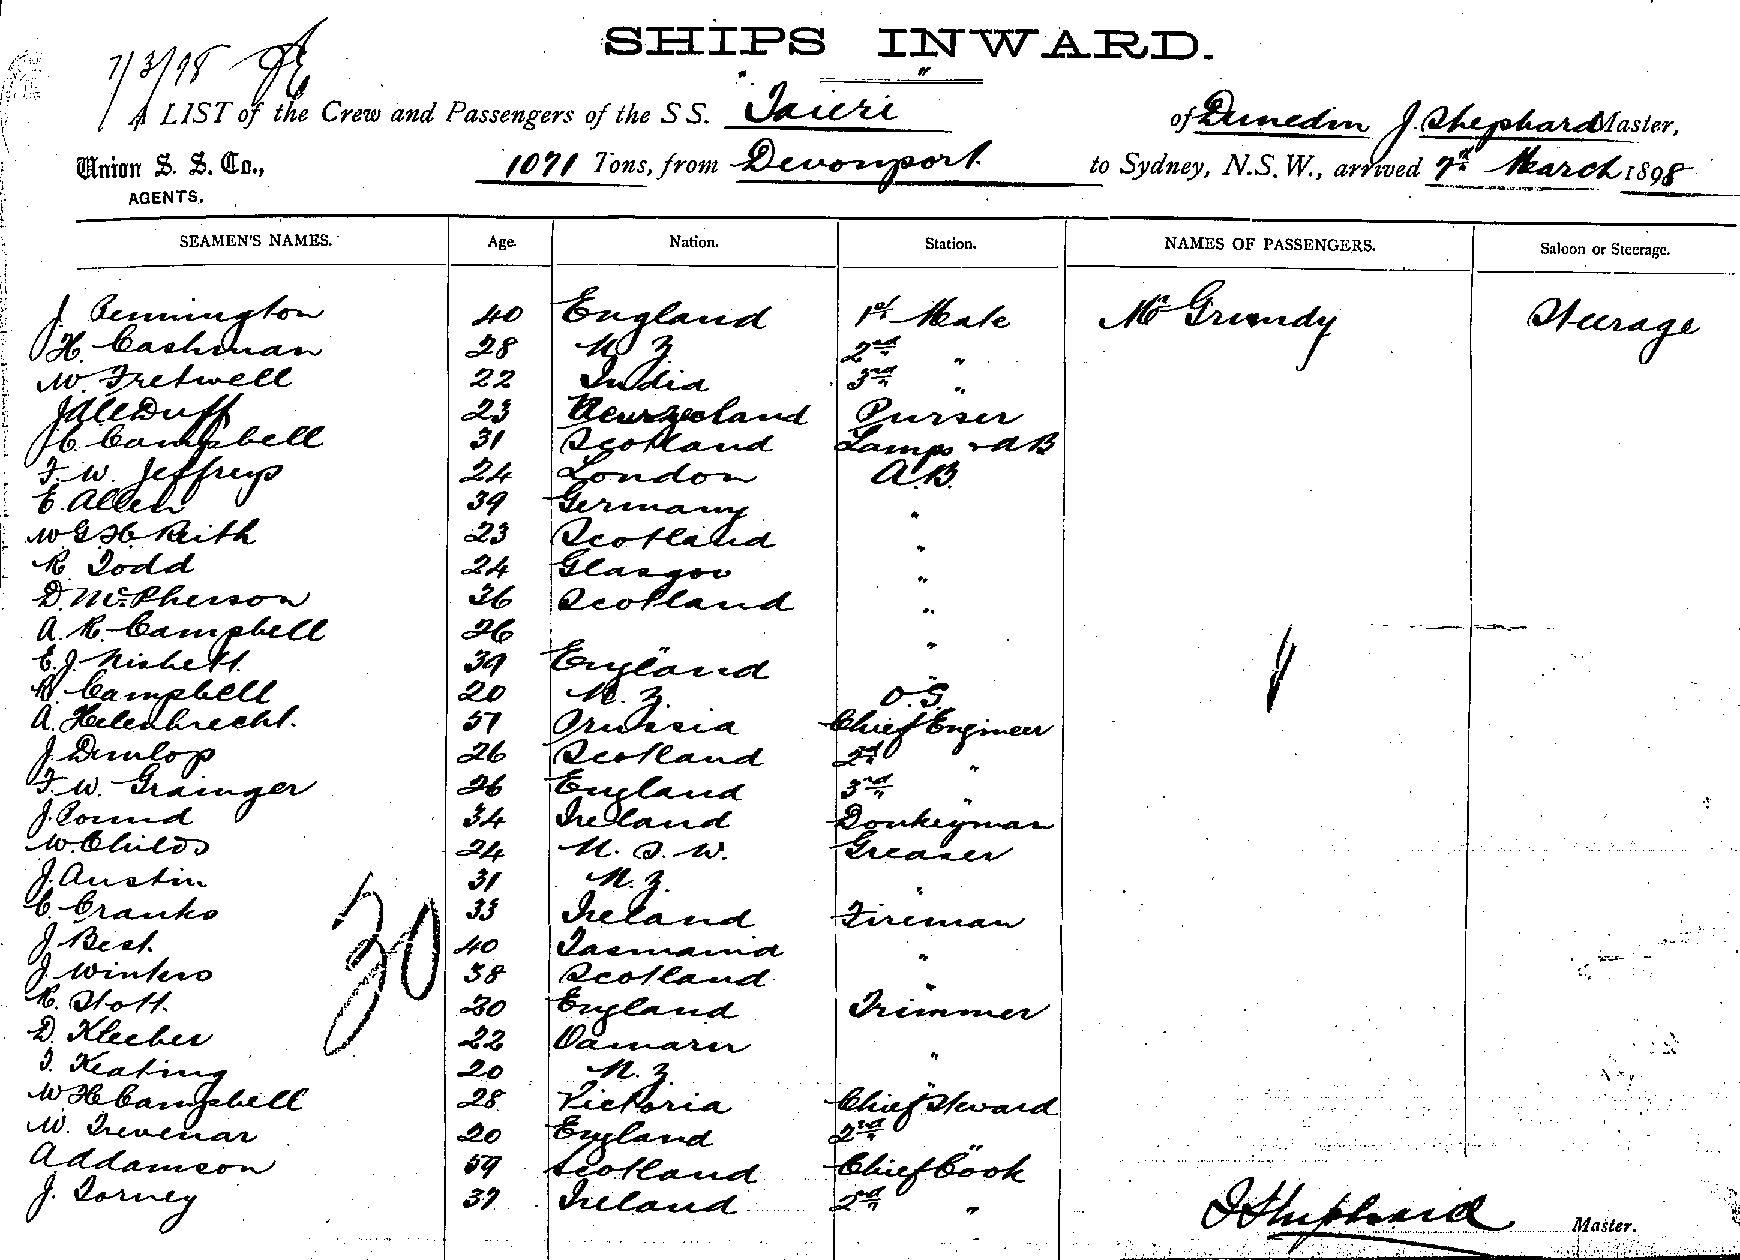 SHIPS INWARD.
7/3/98
A LIST of the Crew and Passengers of the S S. "Taieri" of Dunedin J. Shephard Master,
Union S. S. Co., 1071 Tons, from Devonport to Sydney, N.S.W., arrived 7th March 1898
AGENTS.
SEAMEN'S NAMES. Age. Nation. Station. NAMES OF PASSENGERS. Saloon or Steerage.
J. Pennington 40 England 1st Mate Mr Grundy Steerage
H. Cashman 28 N Z 2nd "
W. Fretwell 22 India 3rd "
J McDuff 23 New Zealand Purser
H. Campbell 31 Scotland Lamps & A B
F. W. Jeffreys 24 London A.B.
E. Allen 39 Germany "
W G H Keith 23 Scotland "
R Todd 24 Glasgow "
D. McPherson 36 Scotland "
A. R. Campbell 26 " "
E. J. Nisbett. 39 England "
R. Campbell 20 N. Z. O.S.
A. Helenbrecht. 57 Prussia Chief Engineer
J. Dunlop 26 Scotland 2nd "
F. W. Grainger 26 England 3rd "
J. Pound 34 Ireland Donkeyman
W. Childs 24 N. S. W. Greaser
J. Austin 31 N. Z. "
C. Cranko 33 Ireland Fireman
J. Best. 40 Tasmania "
J Winkso 38 Scotland "
R. Stott. 20 England Trimmer
D. Kleeber 22 Oamaru "
T. Keating 20 N. Z. "
W H Campbell 28 Victoria Chief Steward
W. Trevenar 20 England 2nd "
A Adamson 59 Scotland Chief Cook
J. Torney 37 Ireland 2nd "
30
J Shephard Master.